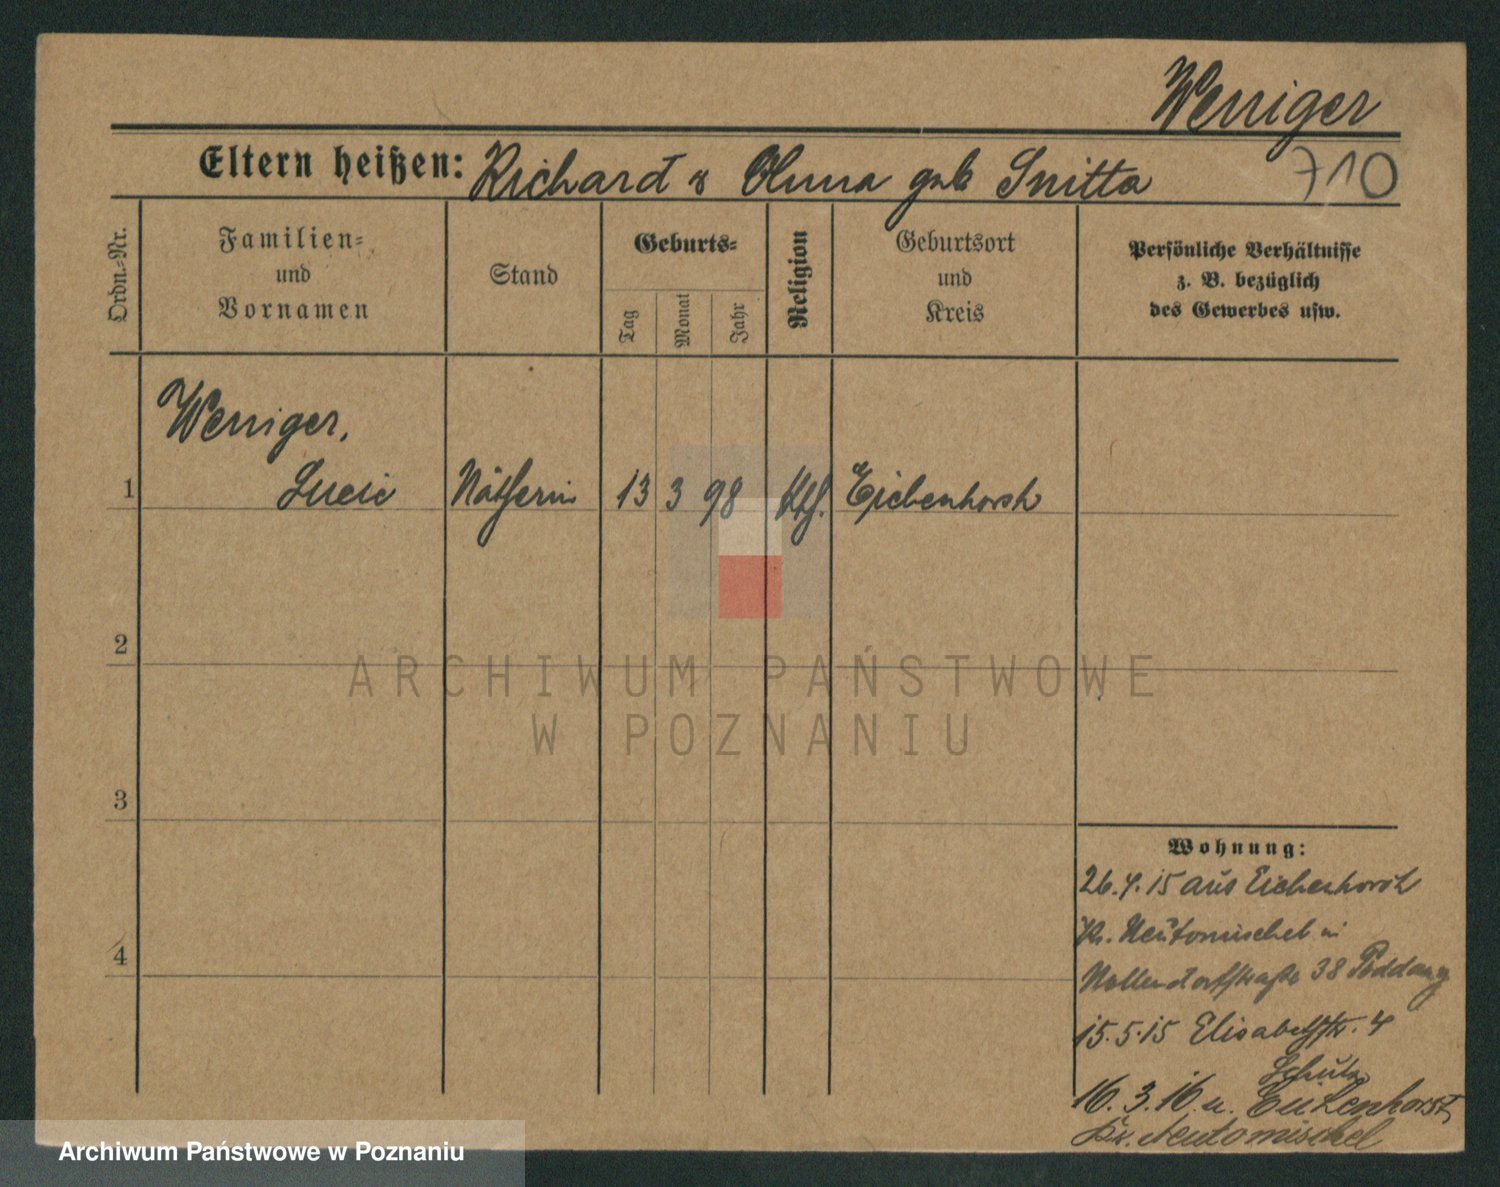 Wenniger
Eltern heißen: Richard & Anna geb Snitta
710
Ordn.=Nr.
Familien=
und
Vornamen
Stand
Geburts=
Tag
Monat
Jahr
Religion
Geburtsort
und
Kreis
Persönliche Verhältnisse
z. B. bezüglich
des Gewerbes usw.
Wenniger,
1 Lucie Näherin 13 3 98 kth. Eichenhorst
2
3
4
Wohnung:
26.4.15 aus Eichenhorst
Kr. Neutomischel in
Nollendorfstraße 38
15.5.15 Elisabethstr. 4
Schulz
16.3.16 n. Eichenhorst,
Kr. Neutomischel
ARCHIWUM PAŃSTWOWE
W POZNANIU
Archiwum Państwowe w Poznaniu